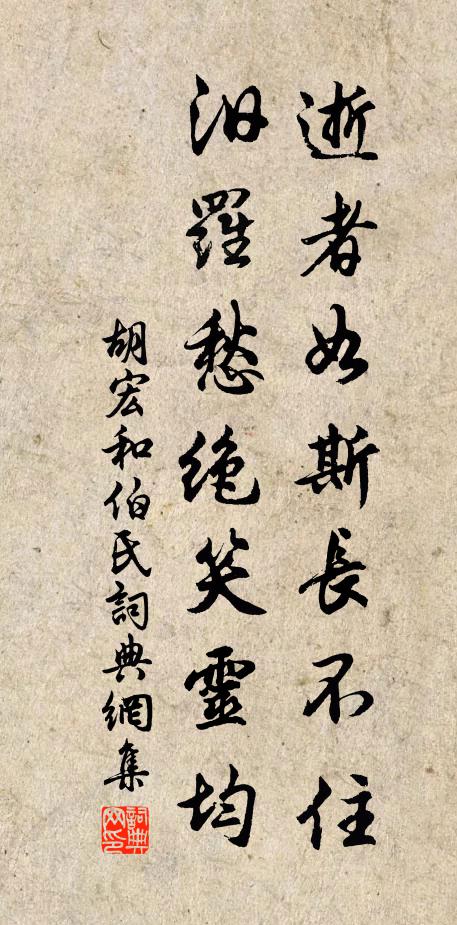 逝者如斯長不住
汨羅愁絶笑靈均
胡宏和伯氏詞典網集
詞典网印